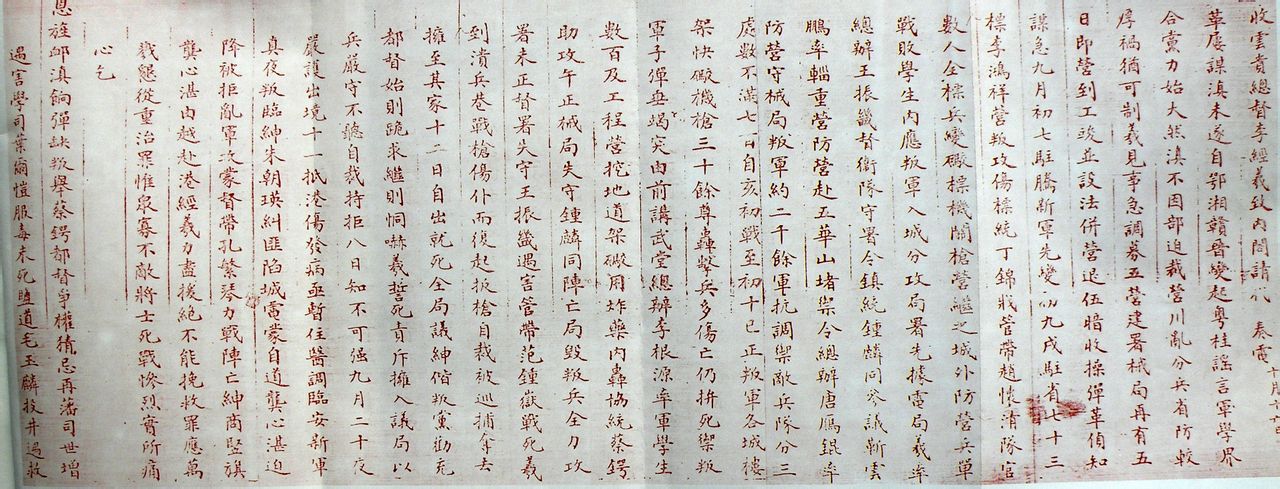 收雲貴總督李經羲致內閣請代奏電 十月
革屢謀滇未遂自鄂湘贛晉變起粵桂謠言軍學界
合黨力始大熬滇不因部迫裁營川亂分兵省防較
厚禍猶可制羲見事急調募五營建署械局再有五
日即營到工竣並設法併營退伍暗收操彈革偵知
謀急九月初七駐騰新軍先變初九戌駐省七十三
標李鴻祥營叛攻傷標統丁錦戕管帶趙懷清隊官
數人全標兵變礮標機關槍營繼之城外防營兵單
戰敗學生內應叛軍入城分攻局署先據電局羲率
總辦王振畿督衛隊守署令鎮統鍾麟同參議靳雲
鵬率輜重營防營赴五華山堵禦令總辦唐爾錕率
防營守械局叛軍約二千餘軍抗調禦敵兵隊分三
處數不滿七百自亥初戰至初十巳正叛軍各城樓
架快礮機槍三十餘尊轟擊兵多傷亡仍拚死禦叛
軍子彈垂竭突由前講武堂總辦李根源率軍學生
數百及工程營挖地道架礮用炸藥內轟協統蔡鍔
助攻午正械局失守鍾麟同陣亡局毀叛兵全力攻
署未正督署失守王振畿遇害管帶范鍾嶽戰死羲
到潰兵巷戰槍傷仆而復起扳槍自裁被巡捕奪去
擁至其家十二日自出就死全局議紳偕叛黨勸充
都督始則跪求繼則恫嚇羲誓死責斥擁入議局以
兵嚴守不聽自裁持拒八日知不可強九月二十夜
嚴護出境十一抵港傷發病亟暫住醫調臨安新軍
真夜叛臨紳朱朝瑛糾匪陷城電蒙自道龔心湛迫
降被拒亂軍攻蒙督帶孔繁琴力戰陣亡紳商豎旗
龔心湛由越赴港經羲力盡援絕不能挽救罪應萬
戮懇從重治罪惟衆寡不敵將士死戰慘烈實所痛
心乞
恩旌卹滇餉彈訣叛舉蔡鍔都督爭權猜忌再藩司世增
遇害學司葉爾愷服毒未死鹽道毛玉麟投井遇救